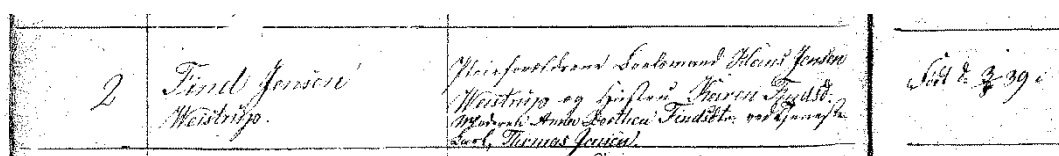 2
Find Jensen
Weistrup.
Pleieforældrene Boelsmand Klaus Jensen
Weistrup og Hustru Karen Findsd.
Moderen Anna Dorthea Findsdtr. ved tjeneste
Karl, Thomas Jensen.
Født d. 3 39 i